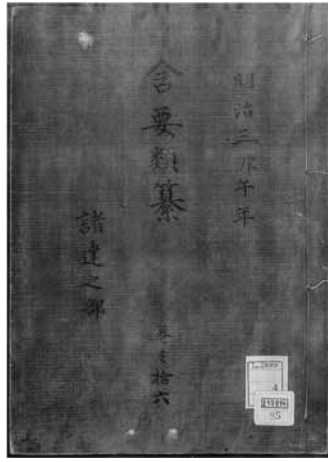 明治三庚午年
含要類纂
諸達之部
巻之拾六
4
S5